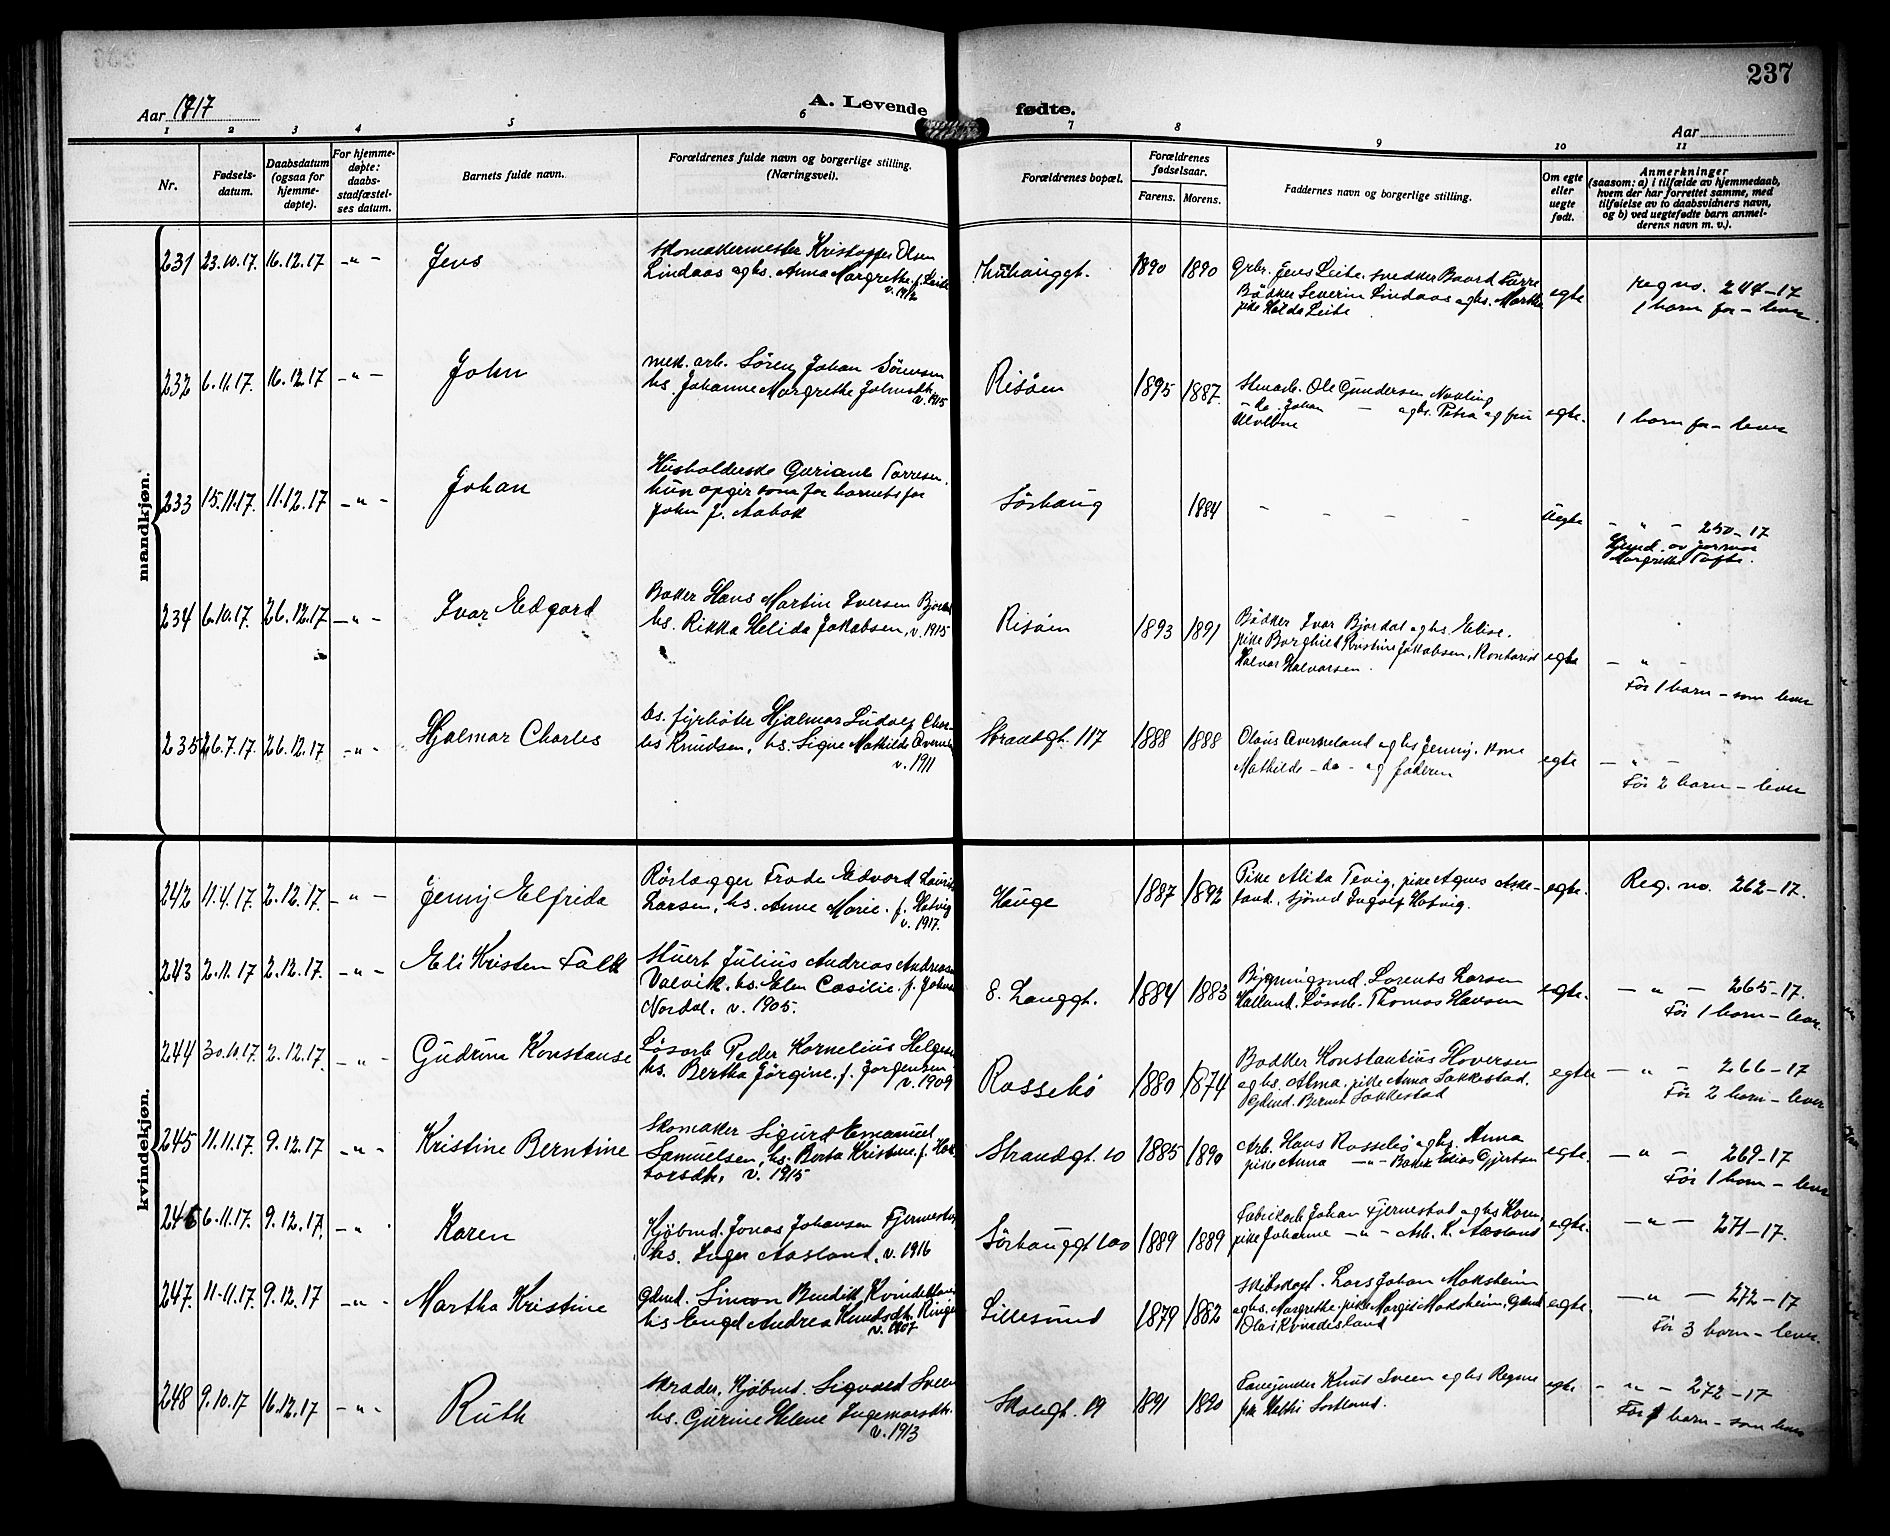 237
Aar 1917
A. Levende fødte.
Aar
1 2 3 4 5 6 7 8 9 10 11
Nr.
Fødsels-
datum.
Daabsdatum
(ogsaa for
hjemme-
døpte).
For hjemme-
døpte:
daabs-
stadfæstel-
ses datum.
Barnets fulde navn.
Forældrenes fulde navn og borgerlige stilling.
(Næringsvei).
Forældrenes bopæl.
Forældrenes
fødselsaar.
Farens. Morens.
Faddernes navn og borgerlige stilling.
Om egte
eller
uegte
født.
Anmerkninger
(saasom: a) i tilfælde av hjemmedaab,
hvem der har forrettet samme, med
tilføielse av to daabsvidners navn,
og b) ved uegtefødte barn anmel-
derens navn m. v.).
mandkjøn.
231 23.10.17. 16.12.17 -"- Jens
Skomakermester Kristoffer Olsen
Lindaas og hs. Anna Margrethe f. Leite
v. 1912
1890 1890
Grbr. Jens Leite. Snedker Baard Farre
Bödker Severin Lindaas og hs. Marthe
pike Hulda Leite
egte
reg no. 244-17
1 barn för - lever.
232 6.11.17. 16.12.17 -"- John
mek. arb. Sören Johan Sörensen
hs. Johanne Margrethe Johnsdtr.
v. 1915
Risöen
1895 1887.
Stenarb. Ole Gundersen
- do. Johan - og hs. Petra og fru
egte.
1 barn för - lever
233 15.11.17. 11.12.17 -"- Johan
Husholderske Guriane Torresen.
hun opgir som far barnets far
John J. Aabak
Sörhaug
1884
- - - -
Uegte
- " - 250-17
Hjemd. av jormor
Margrethe Tofte.
234 6.10.17. 26.12.17 -"- Ivar Edgard
Baker Hans Martin Iversen
hs. Rikka Helida Jakobsen, v. 1915
Risöen
1893 1891
Bödker Ivar Bjordal og hs. Elise.
pike Borghild Kristine Jakobsen, Kontorist
Halvor Halvorsen.
egte
- " -
För 1 barn - som lever
235 26.7.17. 26.12.17 -"- Hjalmar Charles
hs. fyrböter Hjalmar Ludolf Char-
les Knudsen, hs. Signe Mathilde
v. 1911
Strandgt. 117
1888 1888
Olaus Aversland og hs Jenny. kone
Mathilde - do - og faderen
egte
- " -
För 2 barn - lever
kvindekjøn.
242 11.4.17. 2.12.17. -"- Jenny Elfrida
Rörlægger Frode Edvard
Larsen, hs. Anne Marie. f. Hatvig
v. 1917.
Hauge
1887 1892
Pike Alida Tevig, pike Agnes Aske-
land, sjömd Ingolf Hatvig.
egte.
Reg. no. 262-17.
243 2.11.17 2.12.17. -"- Eli Kristen Falk
Stuert Julius Andreas Andreasen
Valvik. hs. Elen Cæsilie. f.
Nordal. v. 1905.
8. Langgt.
1884 1883
Bygningsmd Lorents Larsen
Thomas Hansen
egte.
- " - 265-17.
För 1 barn - lever.
244 30.10.17. 2.12.17. -"- Gudrun Konstanse
Løsarb Peder Kornelius Helgesen
hs. Bertha Jörgine. f. Jørgensen
v. 1909
Rossebö
1880 1874
Bödker Konstantius Hoversen
og hs. Alma. pike Anna Sakkestad.
Gdmd. Bernt Sakkestad
egte
- " - 266-17
För 2 barn - lever
245 11.11.17. 9.12.17 -"- Kristine Berntine
Skomaker Sigurd Emanuel
Samuelsen, hs. Berta Kristine f.
v. 1915
Strandgt. 10
1885 1890
Arb. Hans Rossebö og hs. Anna
pike Anna -"- Baker Elias Gjertsen
egte.
- " - 269-17
För 1 barn - lever
246 6.11.17. 9.12.17. -"- Karen
Kjöbmd. Jonas Johansen Fjermestad
hs. Inger Aasland. v. 1916
Sörhauggt 100
1889 1889
Fabrikarb Johan Fjermestad og hs Karen,
pike Johanne -"- Arb. K. Aasland
egte.
- " - 271-17.
247. 11.11.17. 9.12.17 -"- Martha Kristine
Gdmd. Simon Bendik
hs Engel Andrea Knudsdtr. Ringen
v. 1907
Lillesund
1879 1882
Skibskapt. Lars Johan Moksheim
og hs. Margrethe. pike Margit Moksheim. Gdmd
Olai Kvindesland
egte.
- " - 272-17
För 3 barn - lever.
248 9.10.17 16.12.17 -"- Ruth
Skræder, Kjöbmd. Sigvald Sveen
hs. Gurine Helene Ingemarsdtr.
v. 1913
Skolegt. 19
1891 1890
Knud Sveen og hs Regine
egte
- " - 272-17
För 1 barn - som lever